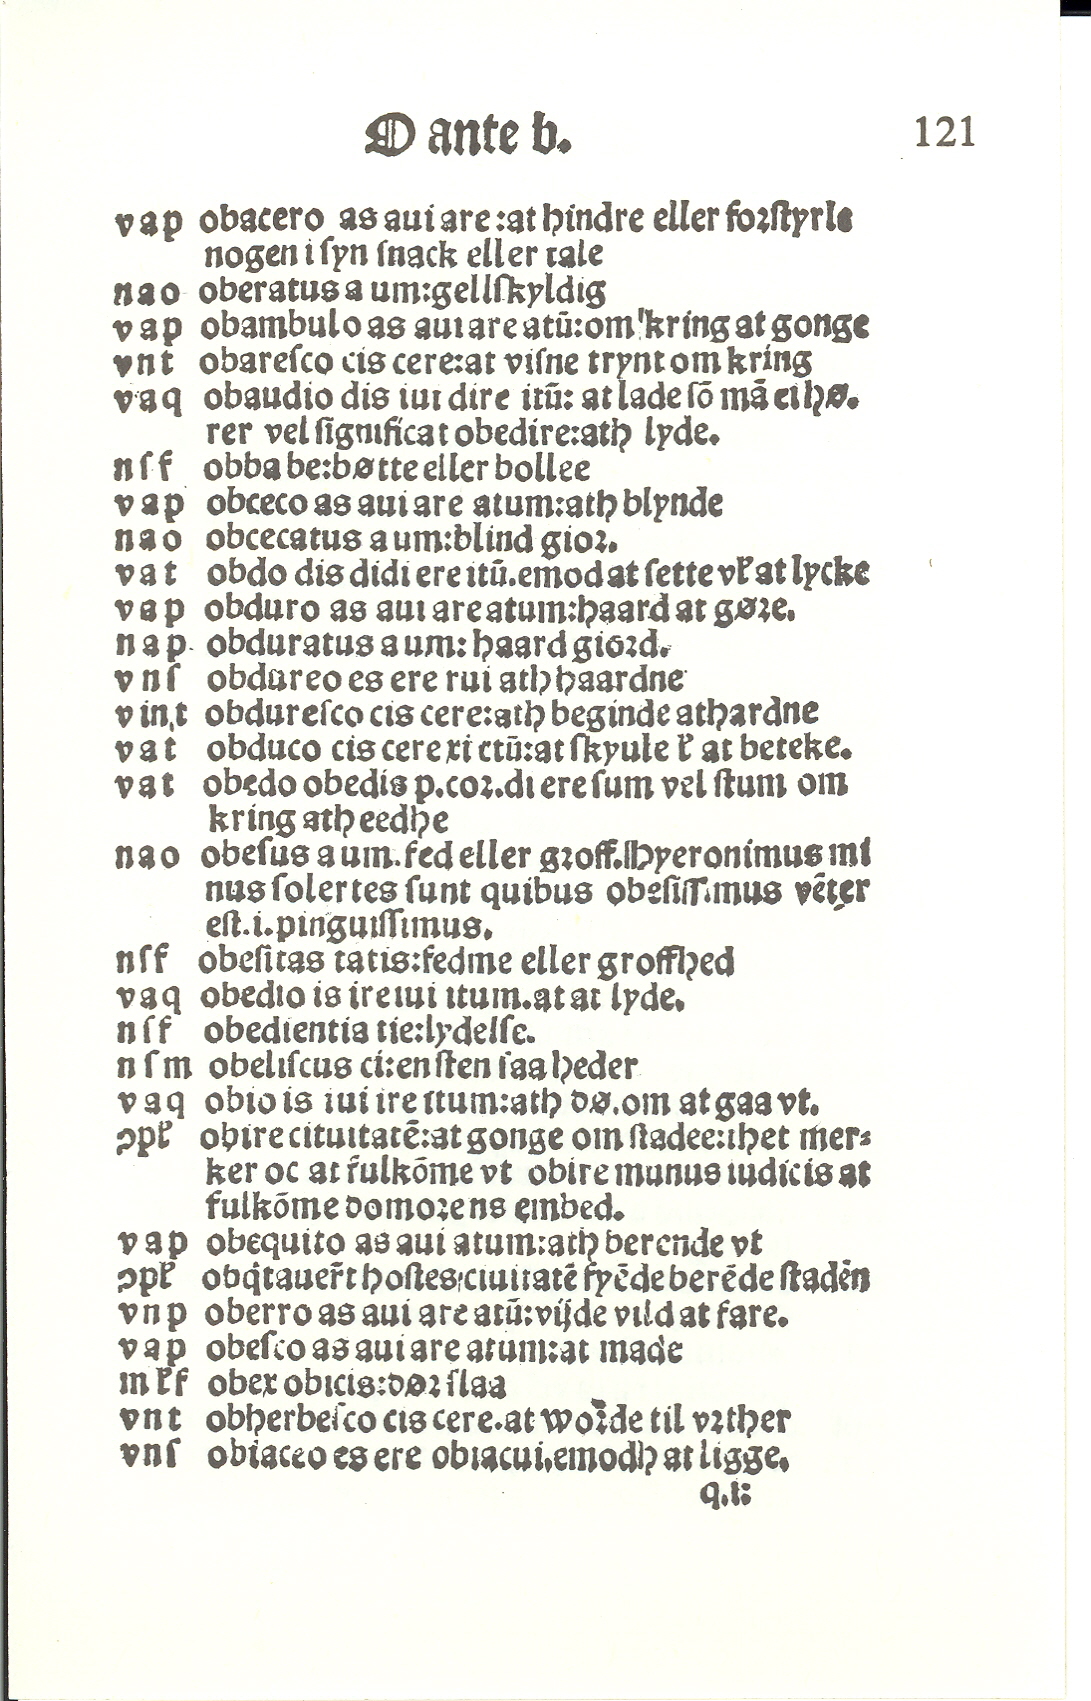 O ante b. 121
vap obacero as aui are:at hindre eller forſtyrle
nogen i ſyn ſnack eller tale
nao oberatus a um:gellſkyldig
vap obambulo as aui are atū:om kring at gonge
vnt obareſco cis cere:at viſne trynt om kring
vaq obaudio dis iui dire itū: at lade ſō mā ei hø.
rer vel ſignificat obedire:ath lyde.
nſf obba be:bøtte eller bollee
vap obceco as aui are atum:ath blynde
nao obcecatus a um:blind gior.
vat obdo dis didi ere itū.emod at ſette vꝉ at lycke
vap obduro as aui are atum:haard at gøre.
nap obduratus a um: haard giord.
vnſ obdureo es ere rui ath haardne
vin.t obdureſco cis cere:ath beginde athardne
vat obduco cis cere xi ctū:at ſkyule ꝉ at beteke.
vat obedo obedis p.cor.di ere ſum vel ſtum om
kring ath eedhe
nao obeſus a um.fed eller groff.Hyeronimus mi
nus ſolertes ſunt quibus obeſiſſimus vēter
eſt.i.pinguiſſimus.
nſf obeſitas tatis:fedme eller groffhed
vaq obedio is ire iui itum.at at lyde.
nſf obedientia tie:lydelſe.
nſm obeliſcus ci:en ſten ſaa heder
vaq obio is iui ire itum:ath dø.om at gaa vt.
ꝓpꝉ obire cituitatē:at gonge om ſtadee:ihet mer⸗
ker oc at fulkōme vt obire munus iudicis at
fulkōme domorens embed.
vap obequito as aui atum:ath berende vt
ꝓpꝉ obq̇tauer̄t hoſtes ciuitatē fyēde berēde ſtadēn
vnp oberro as aui are atū:vijde vild at fare.
vap obeſco as aui are atum:at made
mꝉf obex obicis:dør ſlaa
vnt obherbeſco cis cere.at worde til vrther
vnſ obiaceo es ere obiacui.emodh at ligge.
q.i: